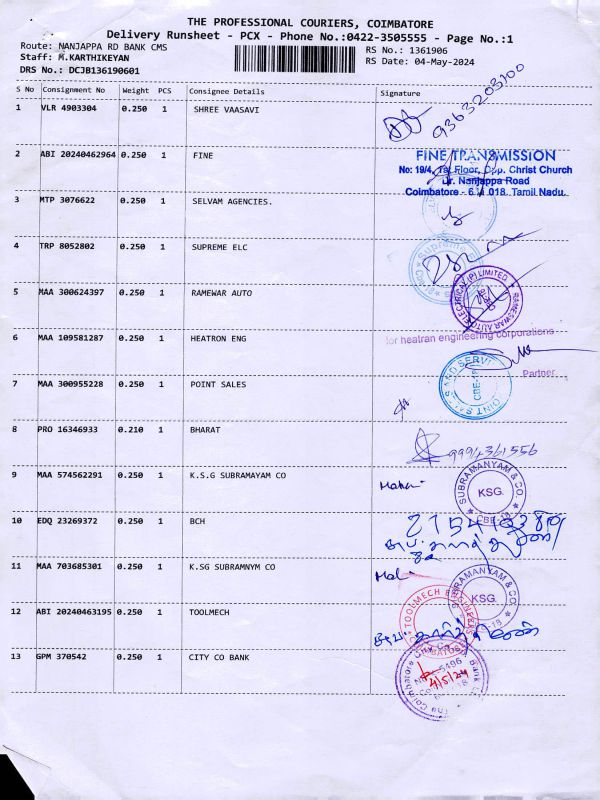 THE PROFESSIONAL COURIERS, COIMBATORE
Delivery Runsheet - PCX - Phone No.:0422-3505555 - Page No.:1
Route: NANJAPPA RD BANK CMS RS No.: 1361906
Staff: M.KARTHIKEYAN RS Date: 04-May-2024
DRS No.: DCJB136190601
S No Consignment No Weight PCS Consignee Details Signature
1 VLR 4903304 0.250 1 SHREE VAASAVI
9363203100
2 ABI 20240462964 0.250 1 FINE
FINE TRANSMISSION
No: 19/4, 1st Floor, Opp. Christ Church
Dr. Nanjappa Road
Coimbatore - 641 018. Tamil Nadu.
3 MTP 3076622 0.250 1 SELVAM AGENCIES.
4 TRP 8052802 0.250 1 SUPREME ELC
Supreme
5 MAA 300624397 0.250 1 RAMEWAR AUTO
RAMESWAR AUTO ELECTRICAL (P) LIMITED
6 MAA 109581287 0.250 1 HEATRON ENG
for heatran engineering corporations
Partner
7 MAA 300955228 0.250 1 POINT SALES
POINT SALES AND SERVI
CBE-18
8 PRO 16346933 0.210 1 BHARAT
9994361556
9 MAA 574562291 0.250 1 K.S.G SUBRAMAYAM CO
SUBRAMANYAM & CO.
KSG.
CBE-18
10 EDQ 23269372 0.250 1 BCH
11 MAA 703685301 0.250 1 K.SG SUBRAMNYM CO
SUBRAMANYAM & CO.
KSG.
12 ABI 20240463195 0.250 1 TOOLMECH
TOOLMECH
13 GPM 370542 0.250 1 CITY CO BANK
The Coimbatore City Co
Bank
4/5/24